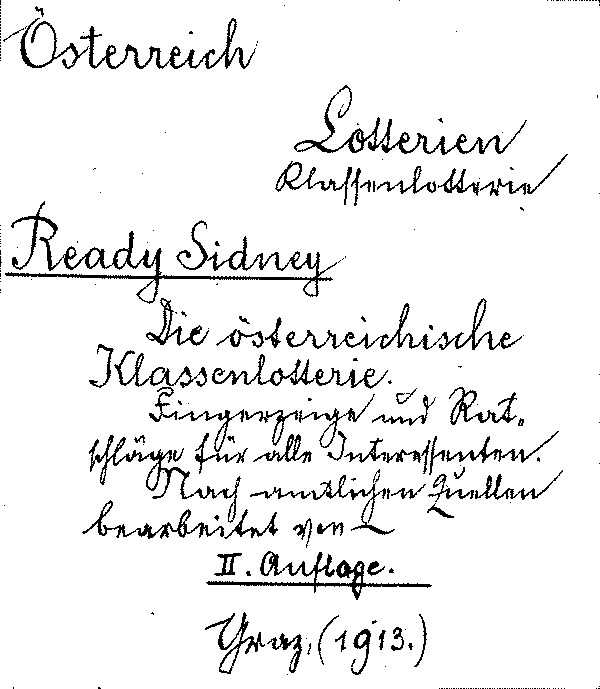 Österreich
Lotterien
Klassenlotterie
Ready Sidney
Die österreichische
Klassenlotterie.
Fingerzeige und Rat-
schläge für alle Interessenten.
Nach amtlichen Quellen
bearbeitet von
II. Auflage.
Graz, (1913.)